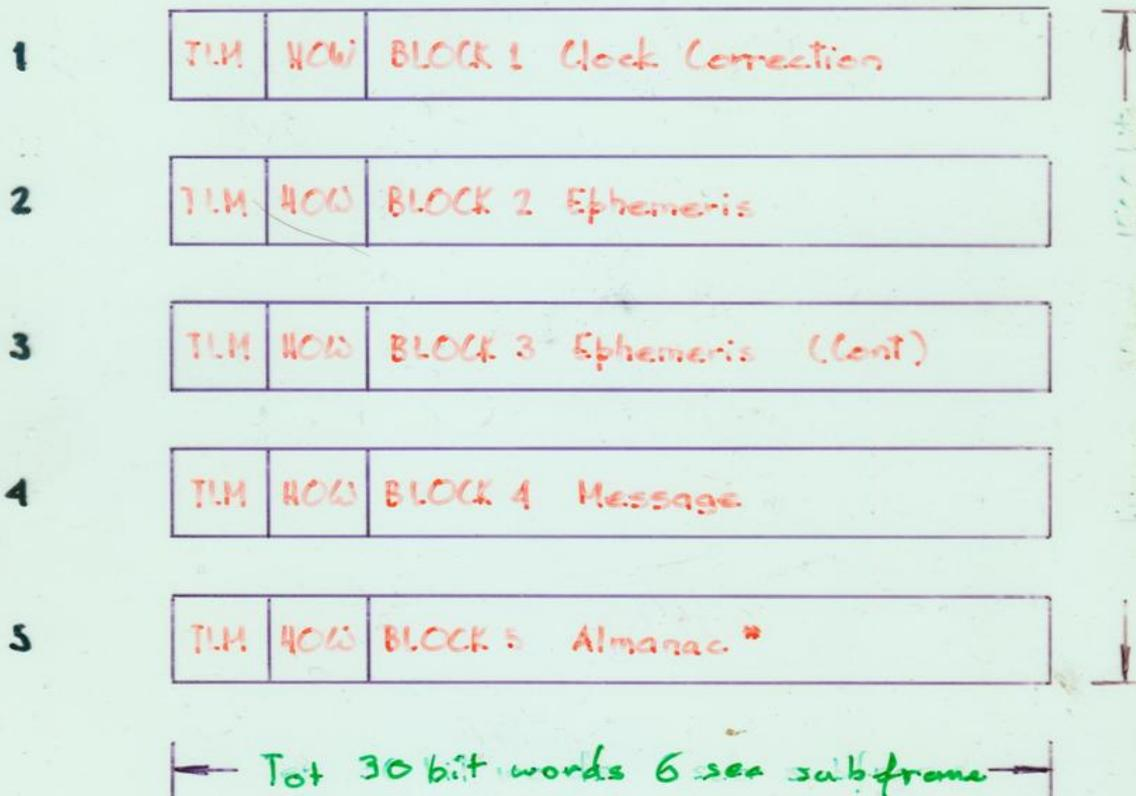 1 TLM HOW BLOCK 1 Clock Correction
2 TLM HOW BLOCK 2 Ephemeris
3 TLM HOW BLOCK 3 Ephemeris (Cont)
4 TLM HOW BLOCK 4 Message
5 TLM HOW BLOCK 5 Almanac *
Tot 30 bit words 6 sec subframe